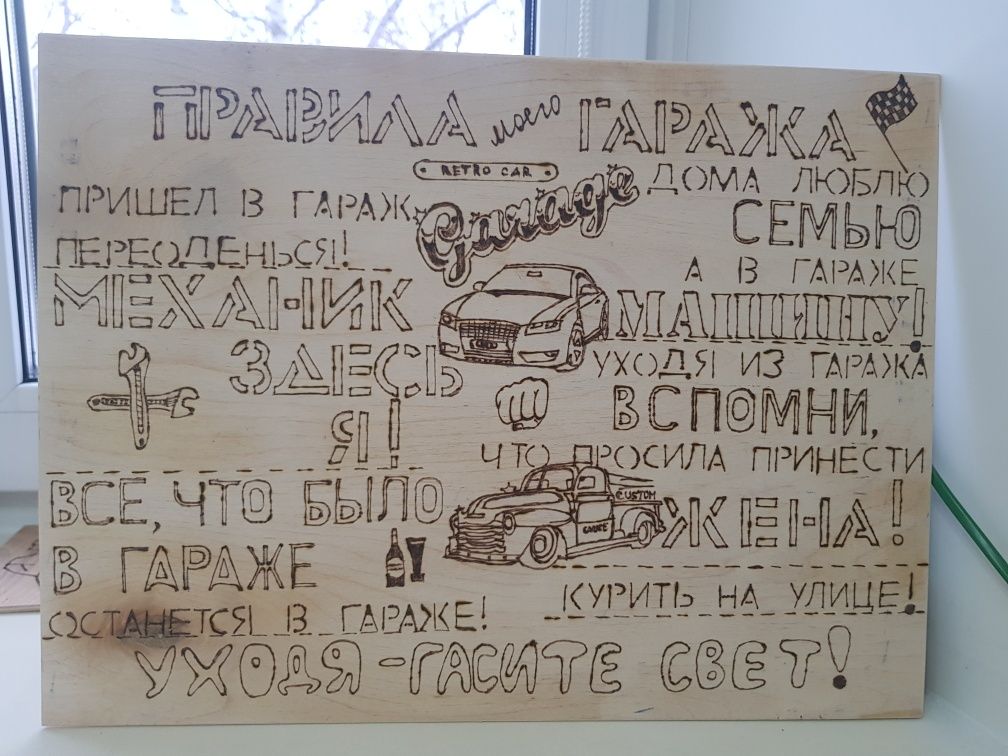 ПРАВИЛА моего ГАРАЖА
RETRO CAR
Garage
ПРИШЕЛ В ГАРАЖ,
ПЕРЕОДЕНЬСЯ!
МЕХАНИК
ЗДЕСЬ
Я!
ВСЕ, ЧТО БЫЛО
В ГАРАЖЕ
ОСТАНЕТСЯ В ГАРАЖЕ!
ДОМА ЛЮБЛЮ
СЕМЬЮ
А В ГАРАЖЕ
МАШИНУ!
УХОДЯ ИЗ ГАРАЖА
ВСПОМНИ,
ЧТО ПРОСИЛА ПРИНЕСТИ
ЖЕНА!
CUSTOM
GARAGE
КУРИТЬ НА УЛИЦЕ!
УХОДЯ - ГАСИТЕ СВЕТ!